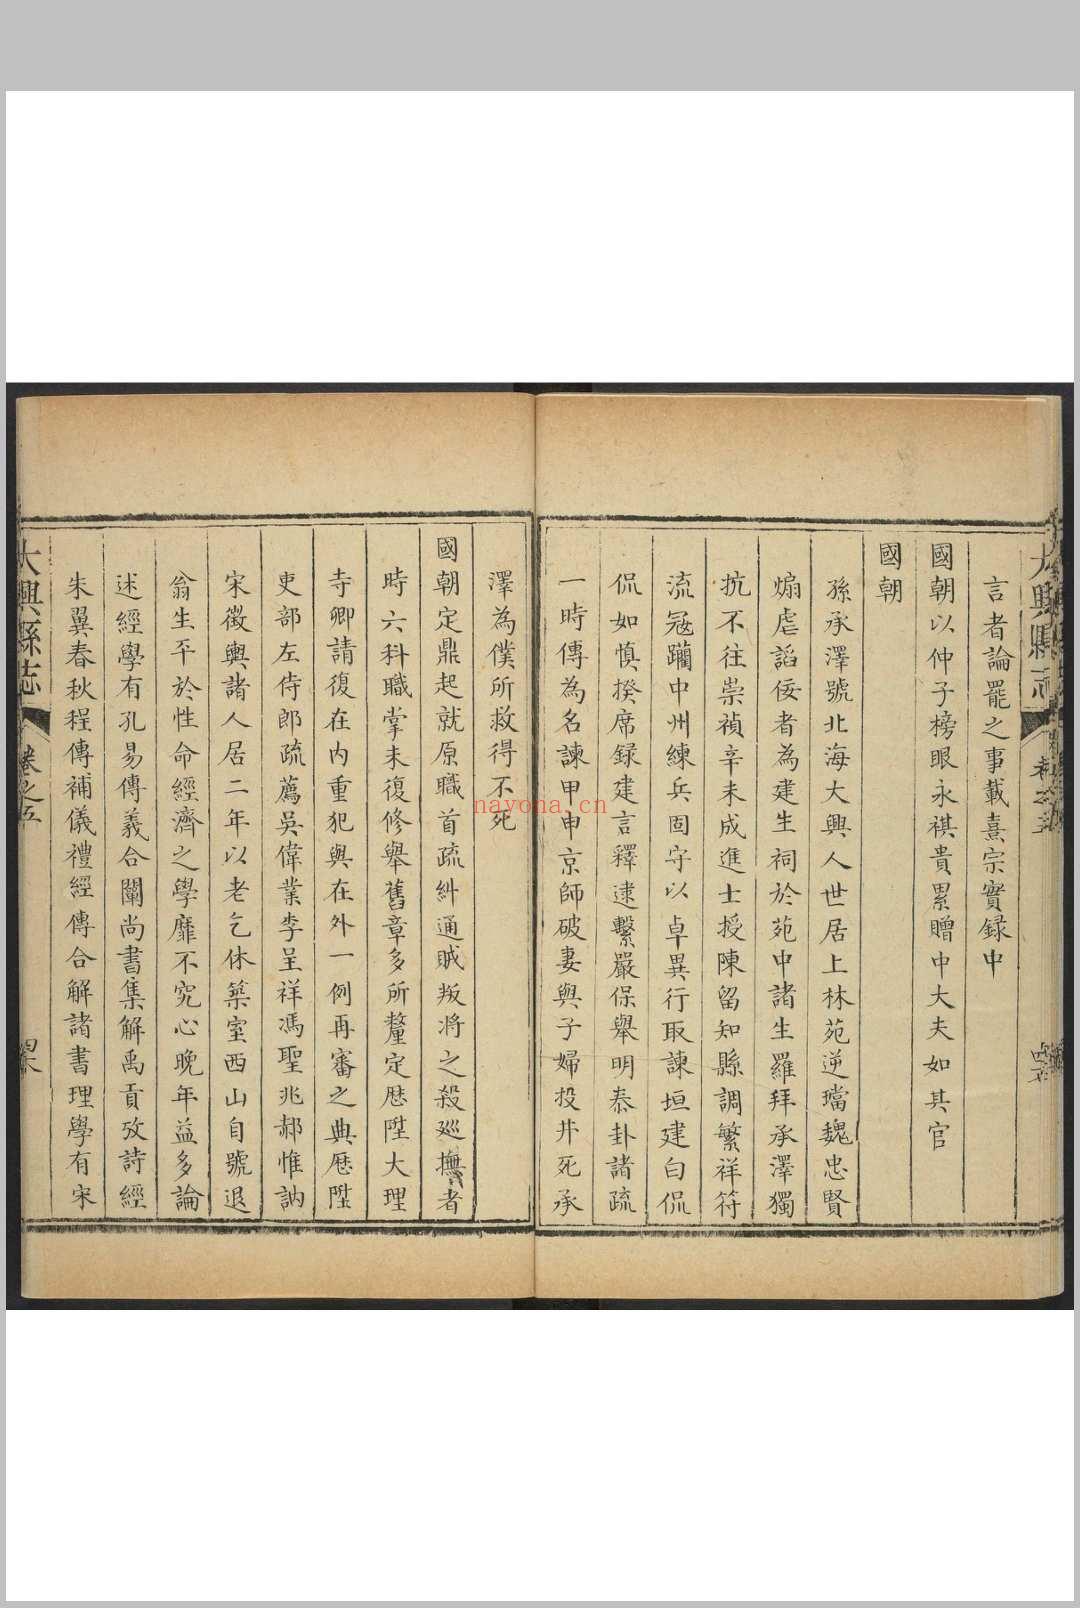 大興縣志
卷之五
言者論罷之事載熹宗實録中
國朝以仲子榜眼永祺貴累贈中大夫如其官
國朝
孫承澤號北海大興人世居上林苑逆璫魏忠賢
煽虐諂佞者為建生祠於苑中諸生羅拜承澤獨
抗不往崇禎辛未成進士授陳留知縣調繁祥符
流寇躪中州練兵固守以卓異行取諫垣建白侃
侃如慎揆席録建言釋逮繫嚴保舉明泰卦諸疏
一時傳為名諫甲申京師破妻與子婦投井死承
澤為僕所救得不死
國朝定鼎起就原職首疏糾通賊叛将之殺廵撫者
時六科職掌未復修舉舊章多所釐定歴陞大理
寺卿請復在内重犯與在外一例再審之典歴陞
吏部左侍郎疏薦吳偉業李呈祥馮聖兆郝惟訥
宋徵輿諸人居二年以老乞休築室西山自號退
翁生平於性命經濟之學靡不究心晚年益多論
述經學有孔易傳義合闡尚書集解禹貢攷詩經
朱翼春秋程傳補儀禮經傳合解諸書理學有宋
大興縣志
卷之五
nayona.cn